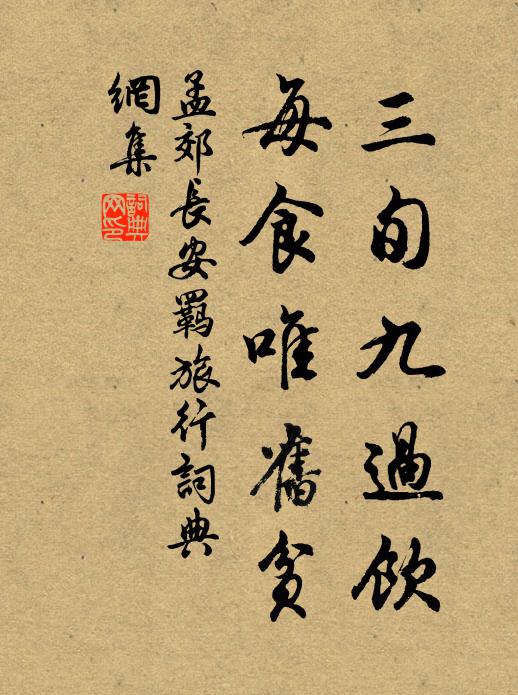 三旬九過飲
每食唯舊貧
孟郊長安羈旅行詞典
網集
詞典網印